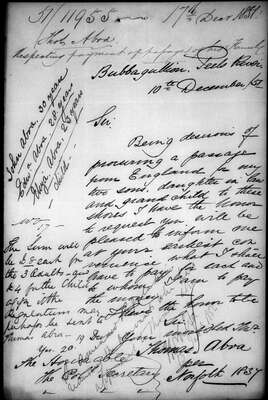 51/11955 17th Decr 1851.
Thos Abra
Respecting payment of passage
Family
Bubbagullion. Peels River
10th December /51
John Abra, 30 years
Edwd Abra 28 years
Eliza Abra 23 years
Child
Sir
Being desirous of
procuring a passage
from England for my
two sons, daughter in law
and grand child to these
shores I have the honor
to request you will be
pleased to inform me
at your earliest con
venience what I shall
have to pay for each and
to whom I am to pay
the money
I have the honor to be
Sir
Your most obdt Sert
Thomas Abra
per
Norfolk 1837
The Sum will
be £8 each for
the 3 Adults and
£4 for the Child
as per the
Regulations may
perhaps be sent to
Thomas Abra. 19 Decr
Yes. 20
The Honorable
the Coll Secretary